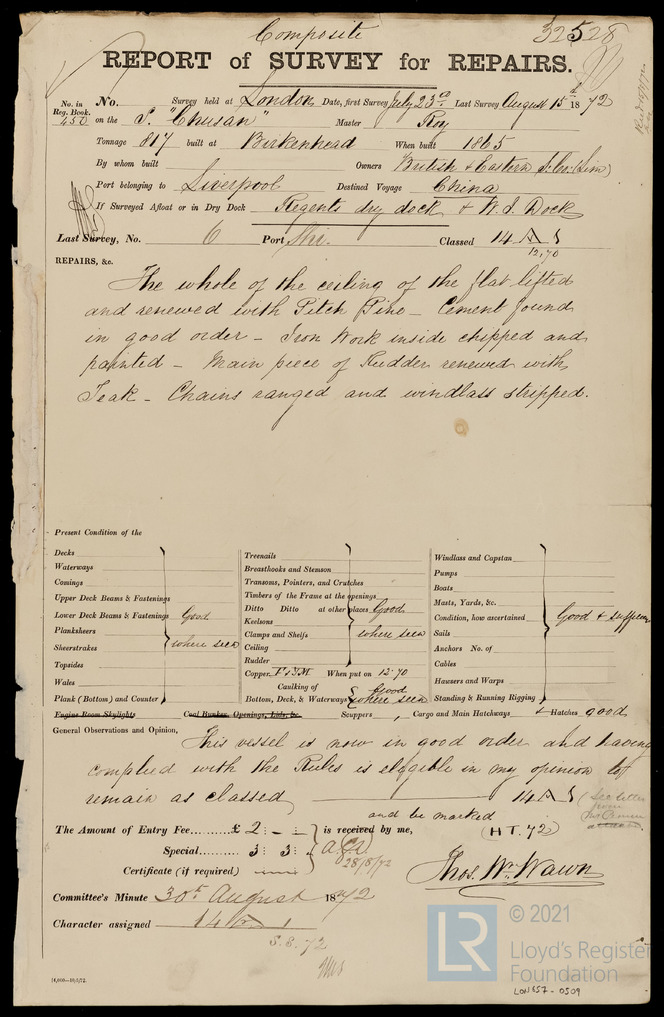 Composite
32528
REPORT of SURVEY for REPAIRS.
No. in Reg. Book. 450
No. Survey held at London Date, first Survey July 23rd Last Survey August 15th 1872
on the S. "Chusan" Master Roy
Tonnage 817 built at Birkenhead When built 1865
By whom built Owners British & Eastern S. Co. (Lim)
Port belonging to Liverpool Destined Voyage China
If Surveyed Afloat or in Dry Dock Regents dry dock & W. I. Dock
Last Survey, No. 6 Port Shi. Classed 14 A 1
12,70
REPAIRS, &c.
The whole of the ceiling of the flat lifted
and renewed with Pitch Pine - Cement found
in good order - Iron Work inside chipped and
painted - Main piece of Rudder renewed with
Teak - Chains ranged and windlass stripped.
Present Condition of the
Decks
Waterways
Comings
Upper Deck Beams & Fastenings
Lower Deck Beams & Fastenings
Planksheers
Sheerstrakes
Topsides
Wales
Plank (Bottom) and Counter
Good where seen
Treenails
Breasthooks and Stemson
Transoms, Pointers, and Crutches
Timbers of the Frame at the openings
Ditto Ditto at other places
Keelsons
Clamps and Shelfs
Ceiling
Rudder
Good where seen
Copper F & YM. When put on 12.70
Caulking of Bottom, Deck, & Waterways Good where seen
Windlass and Capstan
Pumps
Boats
Masts, Yards, &c.
Condition, how ascertained
Sails
Anchors No. of
Cables
Hawsers and Warps
Standing & Running Rigging
Good & sufficien
Engine Room Skylights Coal Bunker Openings, Lids, &c Scuppers , Cargo and Main Hatchways & Hatches good
General Observations and Opinion,
This vessel is now in good order and having
complied with the Rules is eligible in my opinion to
remain as classed 14 A 1
and be marked (H T. 72)
(See letter from
The Amount of Entry Fee......... £ 2 : - : - is received by me,
Special......... 3 : 3 :
28/8/72
Certificate (if required)
Thos. Wm. Wawn
Committee's Minute 30th August 1872
Character assigned 14 A 1
S.S. 72
[4,000-10/5/72.
LR © 2021
Lloyd's Register
Foundation
LON657-0509